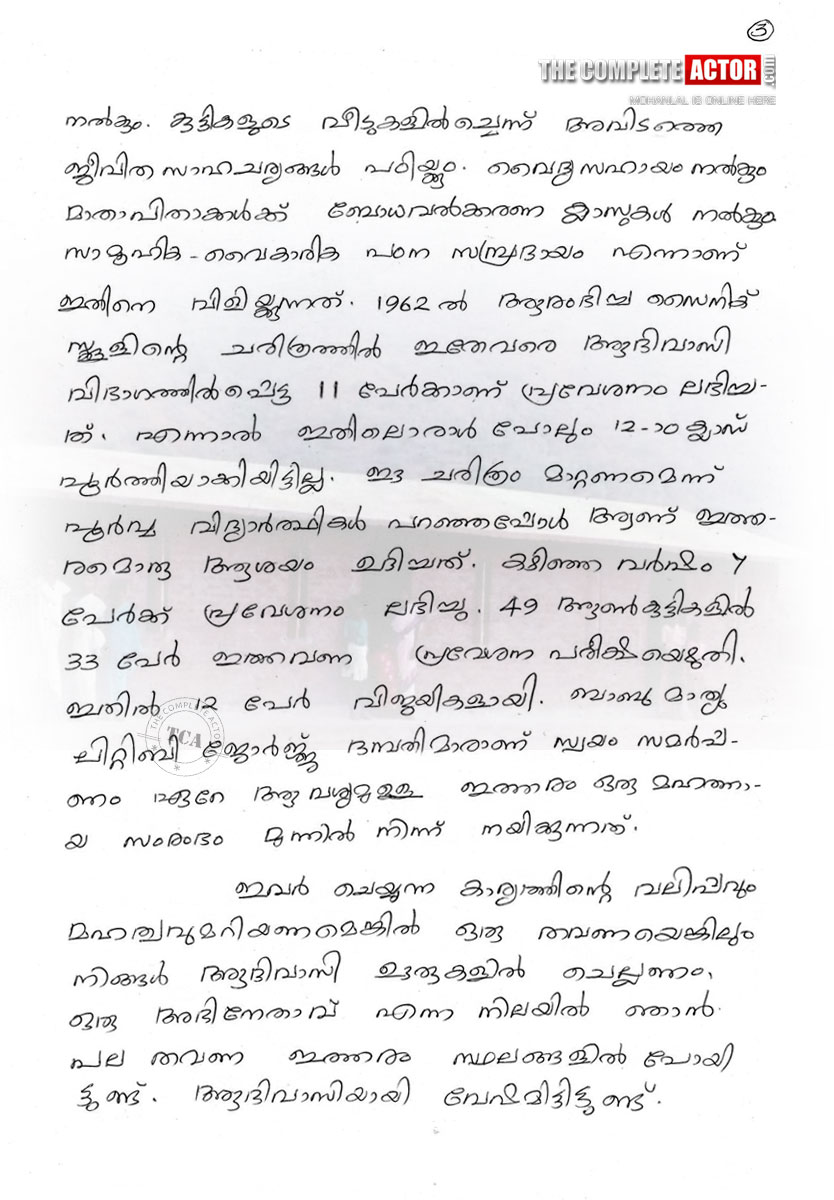 3
THE COMPLETE ACTOR
MOHANLAL IS ONLINE HERE
നൽകും. കുട്ടികളുടെ വീടുകളിൽച്ചെന്ന് അവിടത്തെ
ജീവിത സാഹചര്യങ്ങൾ പഠിയ്ക്കും. വൈദ്യസഹായം നൽകും
മാതാപിതാക്കൾക്ക് ബോധവൽക്കരണ ക്ലാസുകൾ നൽകും
സാമൂഹിക - വൈകാരിക പഠന സമ്പ്രദായം എന്നാണ്
ഇതിനെ വിളിയ്ക്കുന്നത്. 1962 ൽ ആരംഭിച്ച സൈനിക്
സ്കൂളിന്റെ ചരിത്രത്തിൽ ഇതേവരെ ആദിവാസി
വിഭാഗത്തിൽപ്പെട്ട 11 പേർക്കാണ് പ്രവേശനം ലഭിച്ച-
ത്. എന്നാൽ ഇതിലൊരാൾ പോലും 12-ാo ക്ലാസ്
പൂർത്തിയാക്കിയിട്ടില്ല. ഈ ചരിത്രം മാറ്റണമെന്ന്
പൂർവ്വ വിദ്യാർത്ഥികൾ പറഞ്ഞപ്പോൾ ആണ് ഇത്ത-
രമൊരു ആശയം ഉദിച്ചത്. കഴിഞ്ഞ വർഷം 7
പേർക്ക് പ്രവേശനം ലഭിച്ചു. 49 ആൺകുട്ടികളിൽ
33 പേർ ഇത്തവണ പ്രവേശന പരീക്ഷയെഴുതി.
ഇതിൽ 12 പേർ വിജയികളായി. ബാബു മാത്യു
ലിറ്റിബി ജോർജ്ജ് ദമ്പതിമാരാണ് സ്വയം സമർപ്പ-
ണം ഏറേ ആവശ്യമുള്ള ഇത്തരം ഒരു മഹത്താ-
യ സംരംഭം മുന്നിൽ നിന്ന് നയിക്കുന്നത്.
ഇവർ ചെയ്യുന്ന കാര്യത്തിന്റെ വലിപ്പവും
മഹത്വവുമറിയണമെങ്കിൽ ഒരു തവണയെങ്കിലും
നിങ്ങൾ ആദിവാസി ഊരുകളിൽ ചെല്ലണം.
ഒരു അഭിനേതാവ് എന്ന നിലയിൽ ഞാൻ
പല തവണ ഇത്തരം സ്ഥലങ്ങളിൽ പോയി
ട്ടുണ്ട്. ആദിവാസിയായി വേഷമിട്ടിട്ടുണ്ട്.
THE COMPLETE ACTOR
TCA